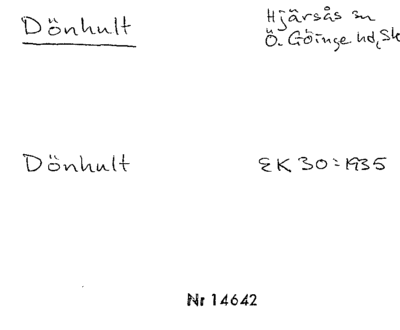 Dönhult
Hjärsås sn
Ö. Göinge hd, Sk
Dönhult
EK 30:1935
Nr 14642